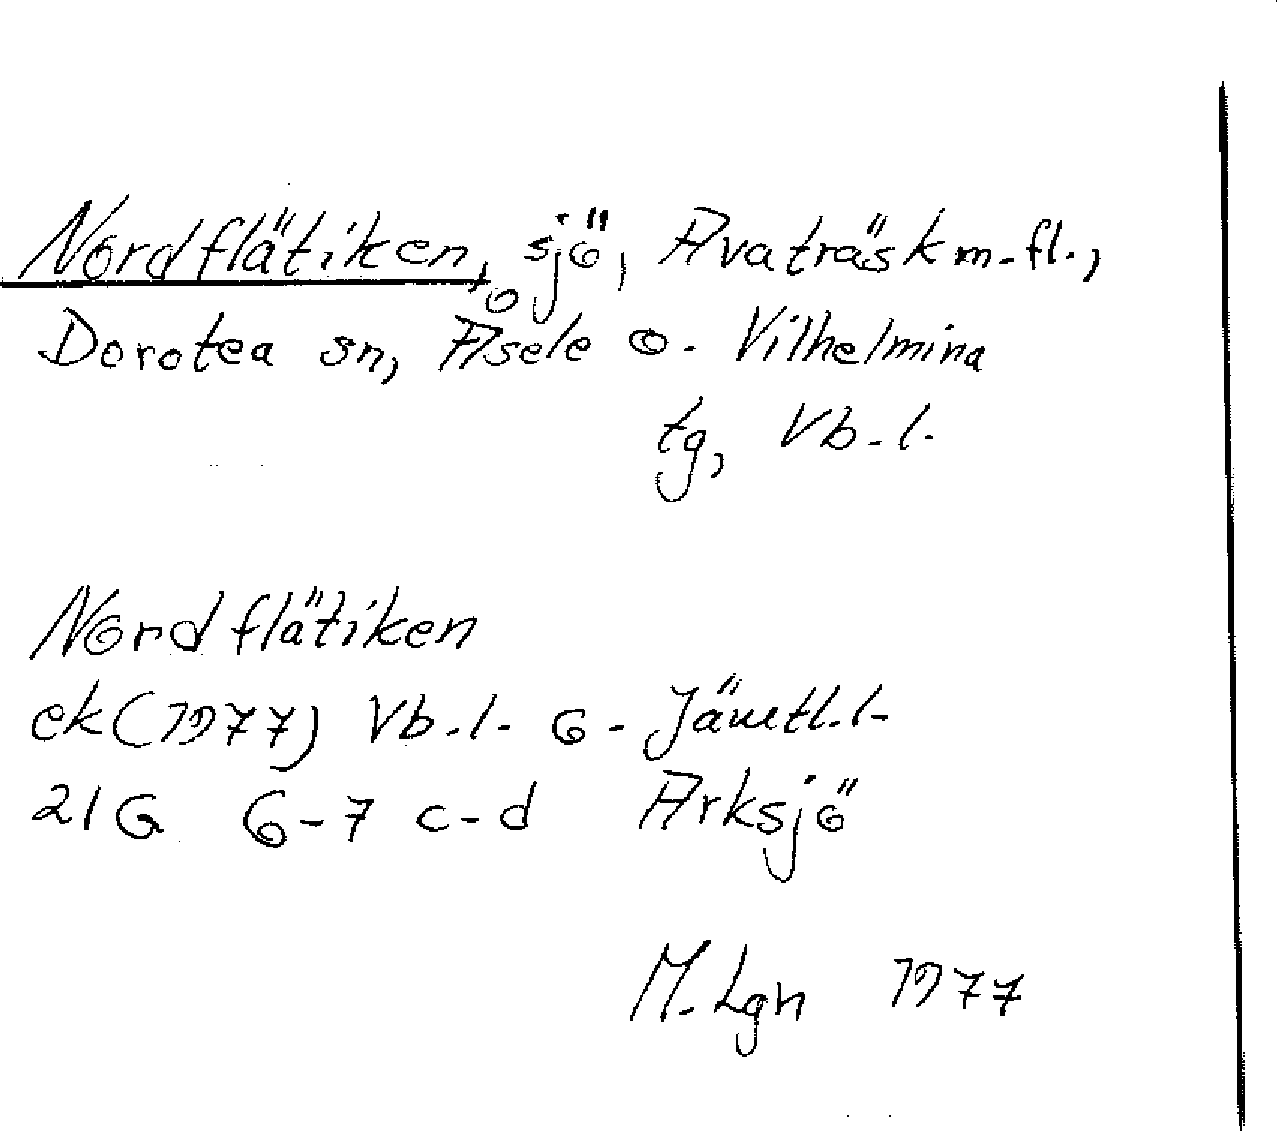 Nordflätiken, sjö, Avaträsk m.fl.,
Dorotea sn, Åsele o. Vilhelmina
tg, Vb.l.
Nordflätiken
ek (1977) Vb.l. o. Jämtl.l.
21G 6-7 c-d Arksjö
M.Lgn 1977